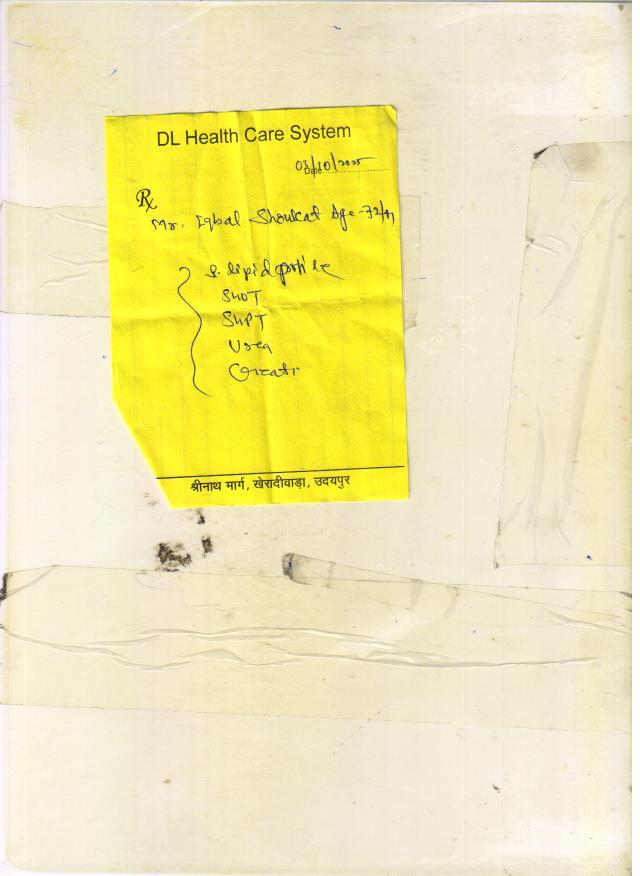 DL Health Care System
Date 03/10/2025
Rx
Mr. Iqbal Shoukat Age-72/M
S. lipid profile
SGOT
SGPT
Urea
Creati
श्रीनाथ मार्ग, खेरादीवाड़ा, उदयपुर